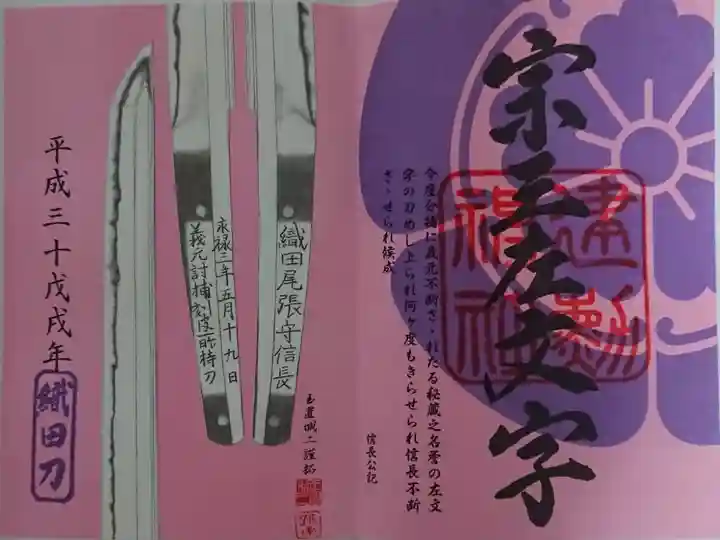 宗三左文字
今度分捕に義元不断さゝれたる秘蔵之名誉の左文
字のめし上られ何ヶ度もきらせられ信長不断
さゝせられ候成
信長公記
建勲
神社
織田尾張守信長
永禄三年五月十九日
義元討捕刻彼所持刀
謹拓
平成三十戊戌年
織田刀